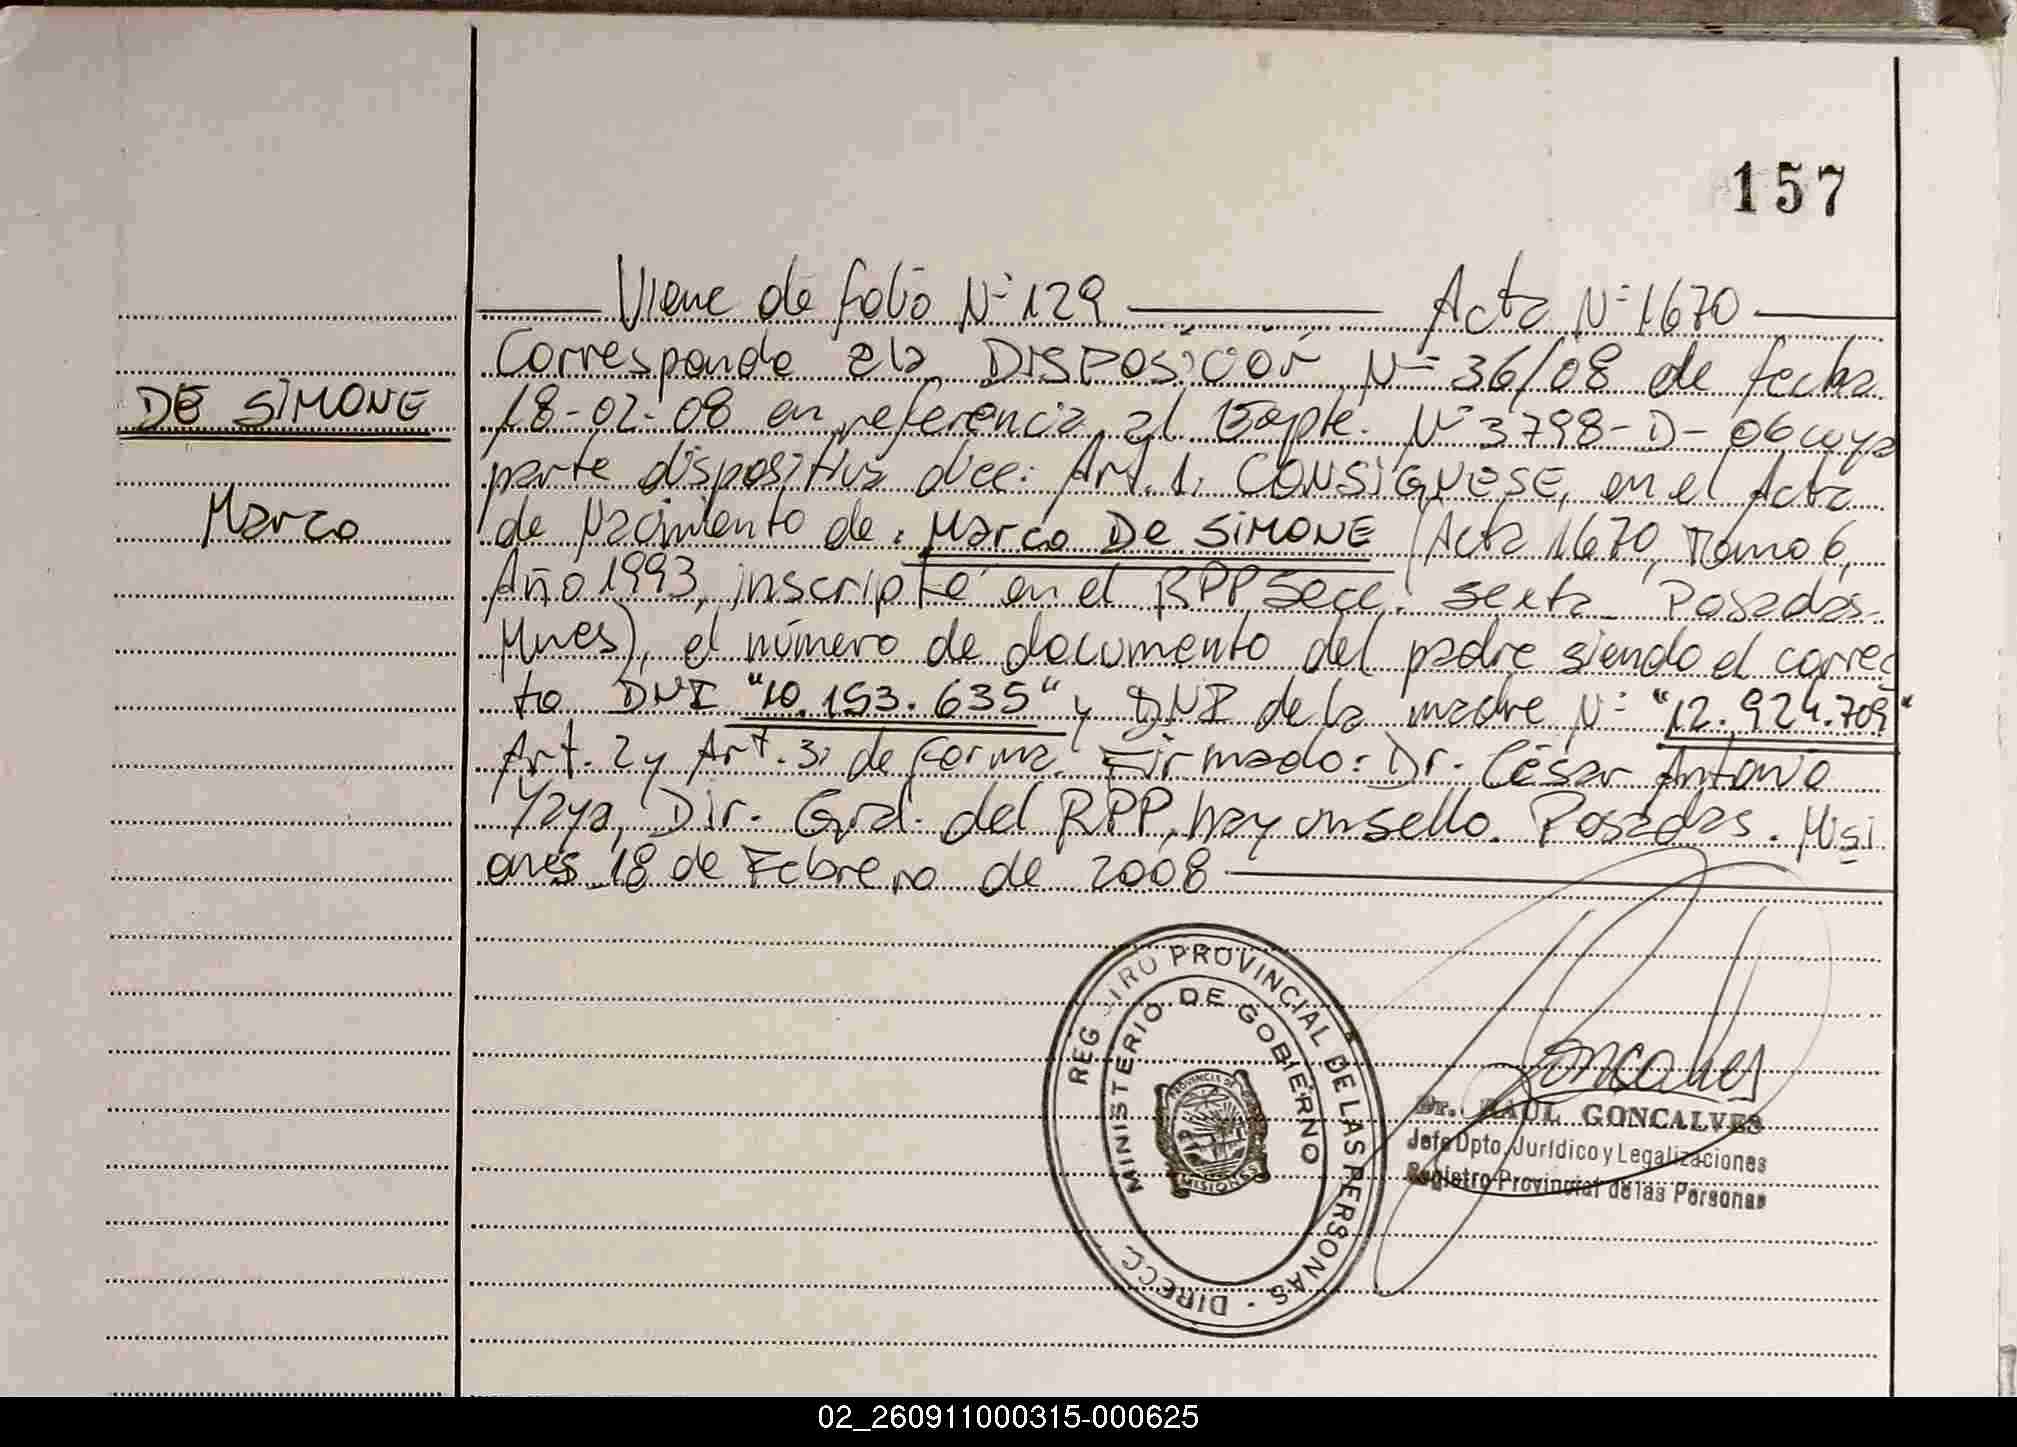 157
Viene de folio Nº 129 Acta Nº 1670
Corresponde a la DISPOSICIÓN Nº 36/08 de fecha
DE SIMONE
18-02-08 en referencia al Expte. Nº 3798-D-06 cuya
parte dispositiva dice: Art. 1. CONSIGNESE, en el Acta
Marco
de Nacimiento de: Marco De SIMONE (Acta 1670, Tomo 6,
Año 1993, inscripta en el RPP Secc. Sexta Posadas-
Mnes), el número de documento del padre siendo el correc
to DNI "10.153.635" y DNI de la madre Nº "12.924.709"
Art. 2 y Art. 3, de forma. Firmado: Dr. César Antonio
Yaya, Dir. Gral. del RPP, hay un sello. Posadas. Misi
ones 18 de Febrero de 2008
REGISTRO PROVINCIAL DE LAS PERSONAS - DIRECC
MINISTERIO DE GOBIERNO
PROVINCIA DE
MISIONES
Goncalves
Dr. RAUL GONCALVES
Jefe Dpto. Jurídico y Legalizaciones
Registro Provincial de las Personas
02_260911000315-000625